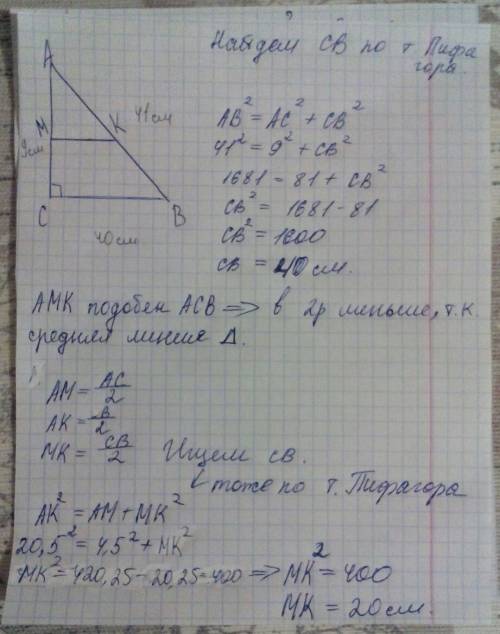 Найдем СВ по т. Пифа
гора.
A
M
K
41см
9см
C
B
40см
AB² = AC² + CB²
41² = 9² + CB²
1681 = 81 + CB²
CB² = 1681 - 81
CB² = 1600
CB = 40 см.
AMK подобен ACB => в 2р меньше, т.к.
средняя линия Δ.
AM = AC/2
AK = B/2
MK = CB/2 Ищем св.
тоже по т. Пифагора
AK² = AM + MK²
20,5² = 4,5² + MK²
MK² = 420,25 - 20,25 = 400 => MK² = 400
MK = 20см.